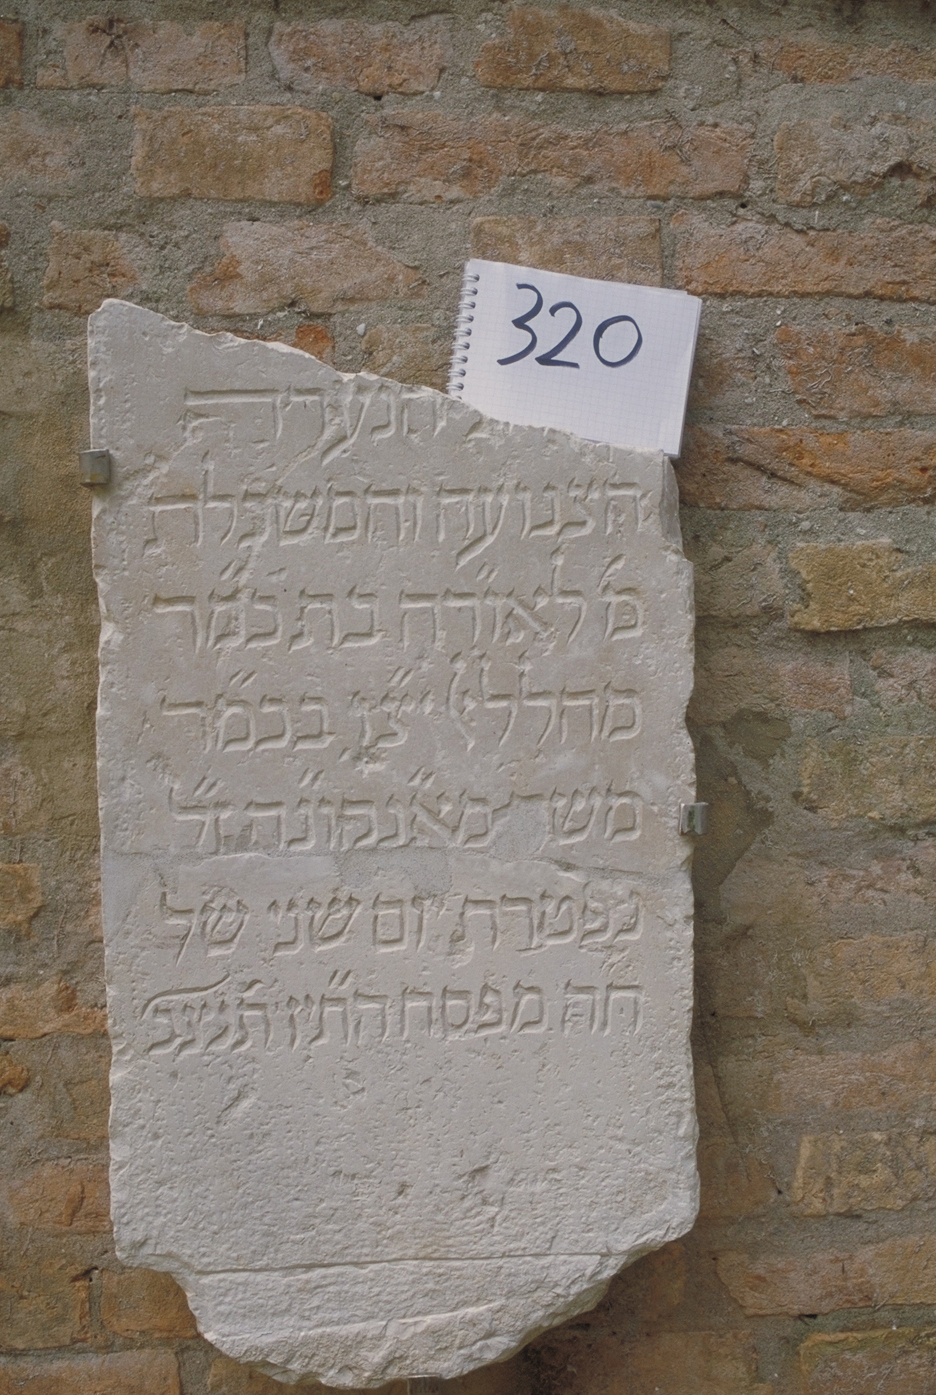 320
הנערה
הצנועה והמשכלת
מ׳ לאורה בת כמ״ר
מחללי׳ יצ״ו בכמ״ר
משה מאנקונה ז״ל
נפטרת יום שני של
חה״מ פסח התיו